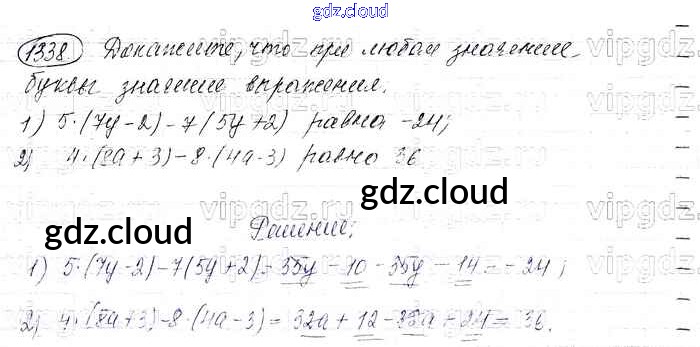 gdz.cloud
1338 Докажите, что при любом значении
буквы значение выражения.
1) 5·(7y-2)-7(5y+2) равна -24;
2) 4·(8a+3)-8·(4a-3) равно 36
gdz.cloud
gdz.cloud
Решение:
1) 5·(7y-2)-7(5y+2)=35y-10-35y-14=-24;
2) 4·(8a+3)-8·(4a-3)=32a+12-32a+24=36.